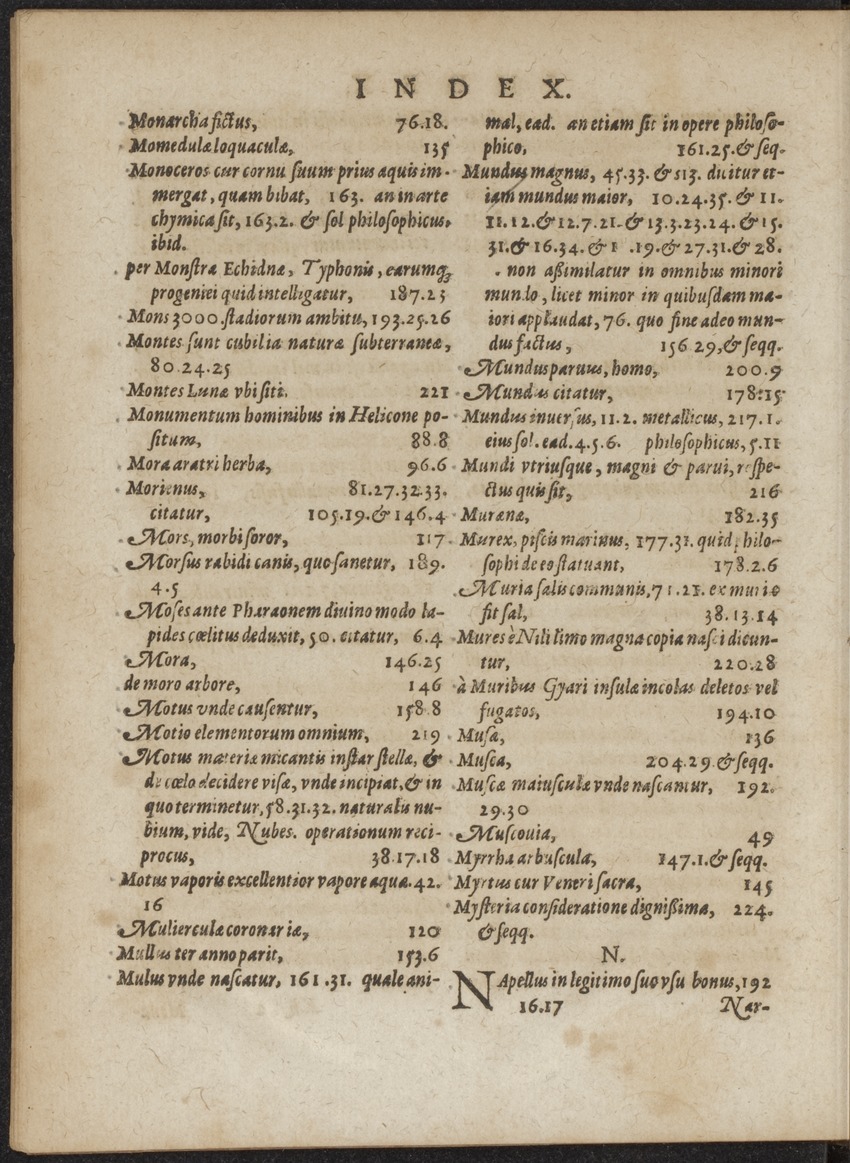 INDEX.
Monarcha fictus, 76.18.
Momedulæ loquaculæ, 135
Monoceros cur cornu suum prius aquis im-
mergat, quam bibat, 163. an in arte
chymica sit, 163.2. & sol philosophicus,
ibid.
per Monstra Echidnæ, Typhonis, earumq;
progeniei quid intelligatur, 187.25
Mons 3000. stadiorum ambitu, 193.25.26
Montes sunt cubilia naturæ subterraneæ,
80.24.25
Montes Lunæ vbi siti. 221
Monumentum hominibus in Helicone po-
situm, 88.8
Mora aratri herba, 96.6
Morienus, 81.27.32.33.
citatur, 105.19.& 146.4
Mors, morbi soror, 117.
Morsus rabidi canis, quo sanetur, 189.
4.5
Moses ante Pharaonem diuino modo la-
pides cœlitus deduxit, 50. citatur, 6.4
Mora, 146.25
de moro arbore, 146
Motus vnde causentur, 158 8
Motio elementorum omnium, 219
Motus materiæ micantis instar stellæ, &
de cœlo decidere visæ, vnde incipiat, & in
quo terminetur, 58.31.32. naturalis nu-
bium, vide, Nubes. operationum reci-
procus, 38.17.18
Motus vaporis excellentior vapore aquæ. 42.
16
Mulierculæ coronariæ, 120
Mullus ter anno parit, 153.6
Mulus vnde nascatur, 161.31. quale ani-
mal, ead. an etiam sit in opere philoso-
phico, 161.25.& seq.
Mundus magnus, 45.33. & 513. dicitur et-
iam mundus maior, 10.24.35. & 11.
11.12.& 12.7.21.& 13.3.23.24. & 15.
31.& 16.34. & 1 .19.& 27.31.& 28.
. non aßimilatur in omnibus minori
mundo, licet minor in quibusdam ma-
iori applaudat, 76. quo fine adeo mun-
dus factus, 156 29,& seqq.
Mundus paruus, homo, 200.9
Mundus citatur, 178.15
Mundus inuersus, 11.2. metallicus, 217.1.
eius sol. ead. 4.5.6. philosophicus, 5.11
Mundi vtriusque, magni & parui, respe-
ctus quis sit, 216
Murænæ, 182.35
Murex, piscis marinus, 177.31. quid philo-
sophi de eo statuant, 178.2.6
Muria salis communis, 71.21. ex muria
fit sal, 38.13.14
Mures è Nili limo magna copia nasci dicun-
tur, 220.28
à Muribus Gyari insulæ incolas deletos vel
fugatos, 194.10
Musa, 136
Musca, 204.29 & seqq.
Muscæ maiusculæ vnde nascantur, 192.
29.30
Muscouia, 49
Myrrha arbuscula, 147.1.& seqq.
Myrtus cur Veneri sacra, 145
Mysteria consideratione dignißima, 224.
& seqq.
N.
NApellus in legitimo suo vsu bonus, 192
16.17 Nar-